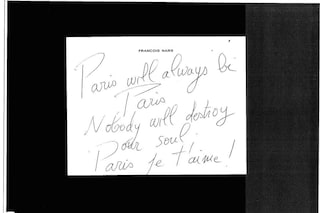 FRANCOIS NARS
Paris will always be
Paris
Nobody will destroy
your soul.
Paris je t'aime !